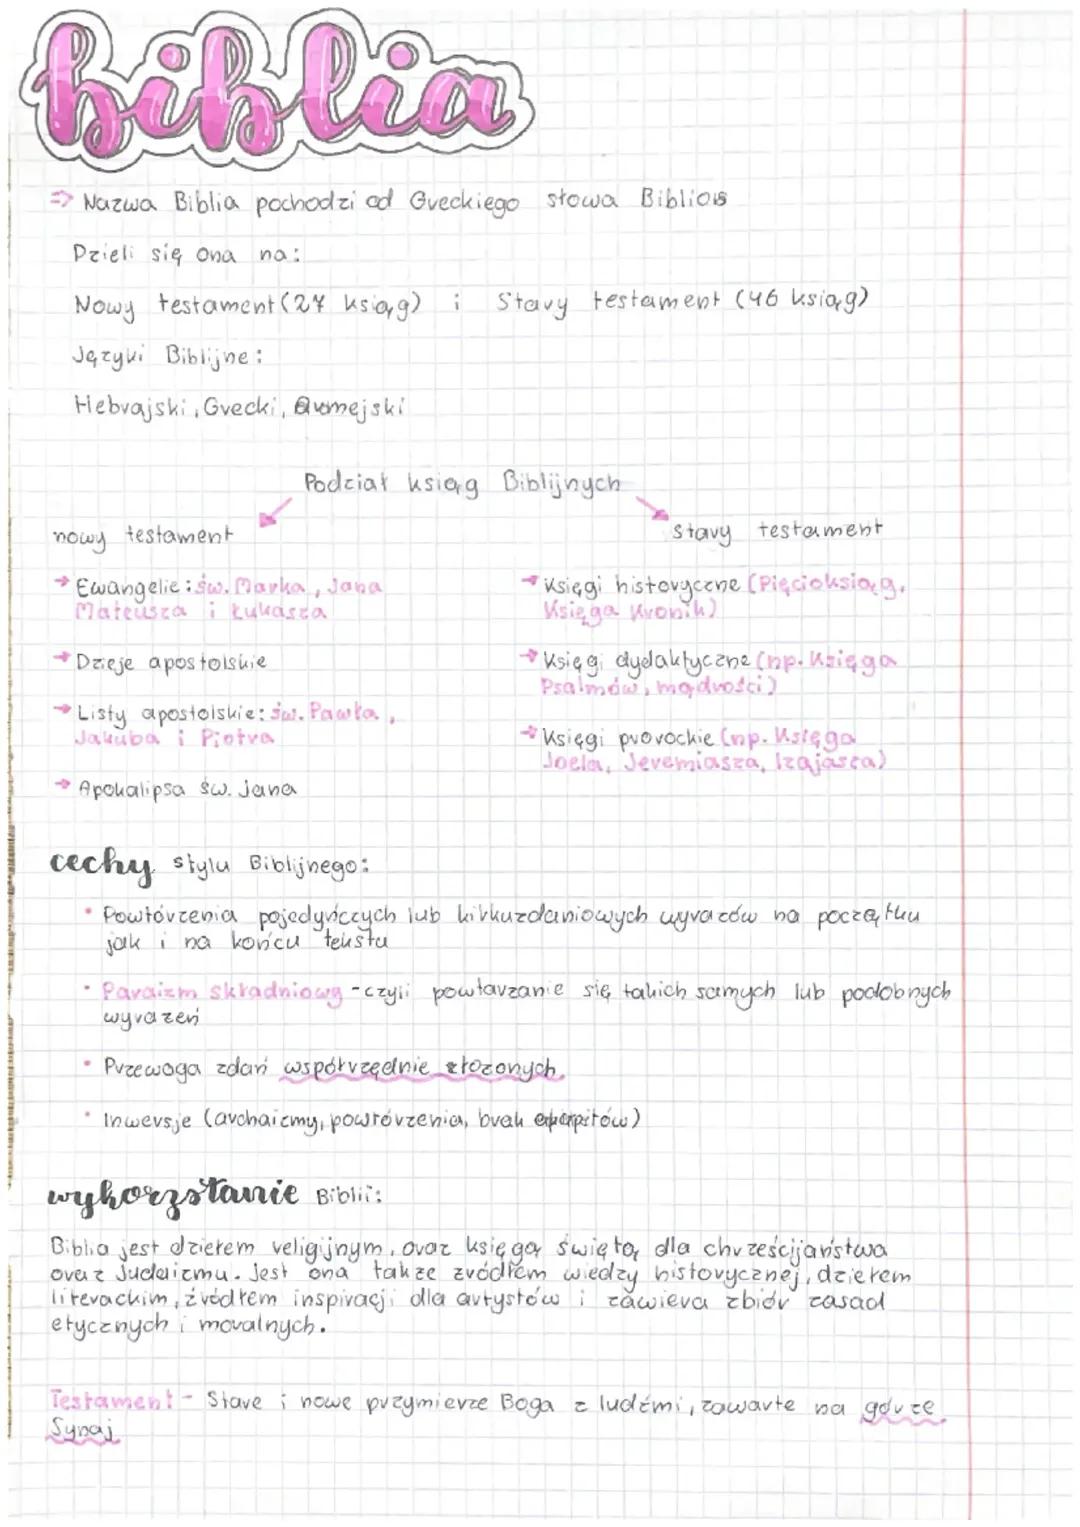 biblia
=> Nazwa Biblia pochodzi od Greckiego słowa Biblios
Dzieli się ona na:
Nowy testament (27 ksiąg) i Stary testament (46 ksiąg)
Języki Biblijne:
Hebrajski, Grecki, Aramejski
Podział ksiąg Biblijnych
nowy testament
stary testament
→ Ewangelie: św. Marka, Jana
Mateusza i Łukasza
→ Dzieje apostolskie
→ Listy apostolskie: św. Pawła,
Jakuba i Piotra
→ Apokalipsa św. jana
→ Księgi historyczne (Pięcioksiąg,
Księga Kronik)
→ Księgi dydaktyczne (np. Księga
Psalmów, mądrości)
→ Księgi prorockie (np. Księga
Joela, Jeremiasza, Izajasza)
cechy stylu Biblijnego:
• Powtórzenia pojedyńczych lub kilkuzdaniowych wyrazów na początku
jak i na końcu tekstu
• Paraizm składniowy - czyli powtarzanie się takich samych lub podobnych
wyrażeń
• Przewaga zdań współrzędnie złożonych
• Inwersje (archaizmy, powtórzenia, brak)
wykorzstanie Biblii:
Biblia jest dziełem religijnym, oraz księgą świętą dla chrześcijaństwa
oraz Judaizmu. Jest ona także źródłem wiedzy historycznej, dziełem
literackim, źródłem inspiracji dla artystów i zawiera zbiór zasad
etycznych i moralnych.
Testament - Stare i nowe przymierze Boga z ludźmi, zawarte na górze
Synaj